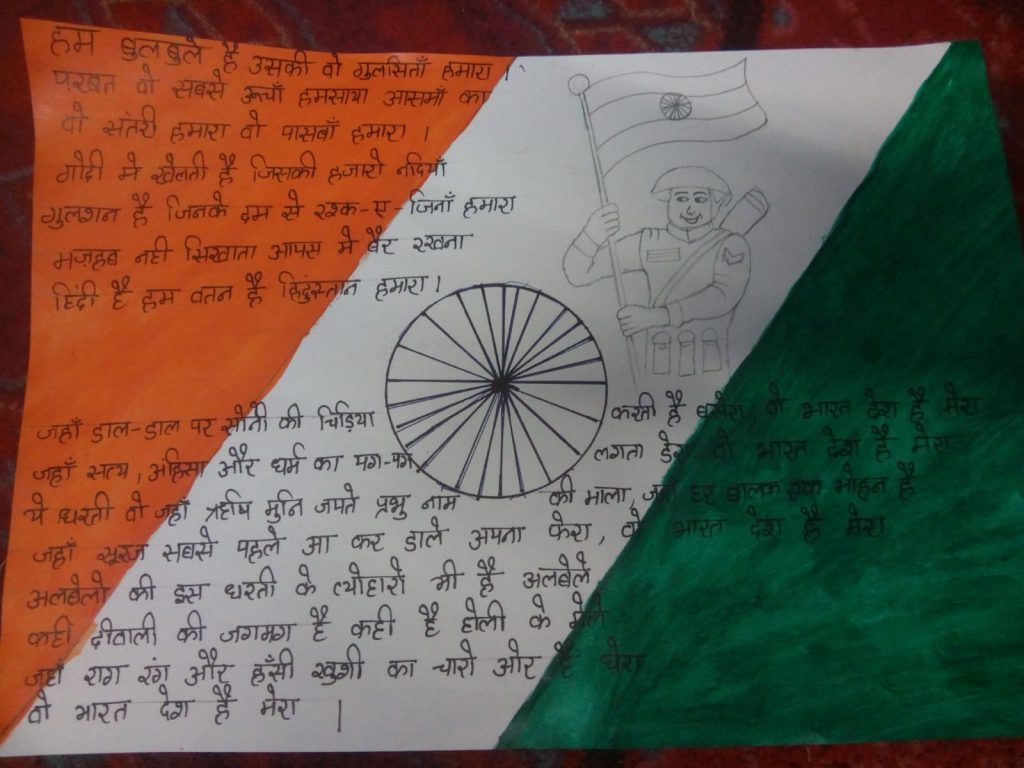 हम बुलबुले है उसकी वो गुलसिताँ हमारा ।
परबत वो सबसे ऊचाँ हमसाया आसमाँ का
वो संतरी हमारा वो पासबाँ हमारा ।
गोदी मे खेलती है जिसकी हजारो नदियाँ
गुलशन है जिनके दम से रश्क-ए-जिनाँ हमारा
मज़हब नही सिखाता आपस मे बैर रखना
हिंदी है हम वतन है हिंदुस्तान हमारा ।
जहाँ डाल-डाल पर सोने की चिड़िया करती है बसेरा, वो भारत देश है मेरा
जहाँ सत्य, अहिंसा और धर्म का पग-पग लगता डेरा वो भारत देश है मेरा
ये धरती वो जहाँ ऋषि मुनि जपते प्रभु नाम की माला, जहाँ हर बालक एक मोहन है
जहाँ सूरज सबसे पहले आ कर डाले अपना फेरा, वो भारत देश है मेरा
अलबेलो की इस धरती के त्योहारो भी है अलबेले
कही दीवाली की जगमग है कही है होली के मेले
जहाँ राग रंग और हँसी खुशी का चारो ओर है घेरा
वो भारत देश है मेरा |